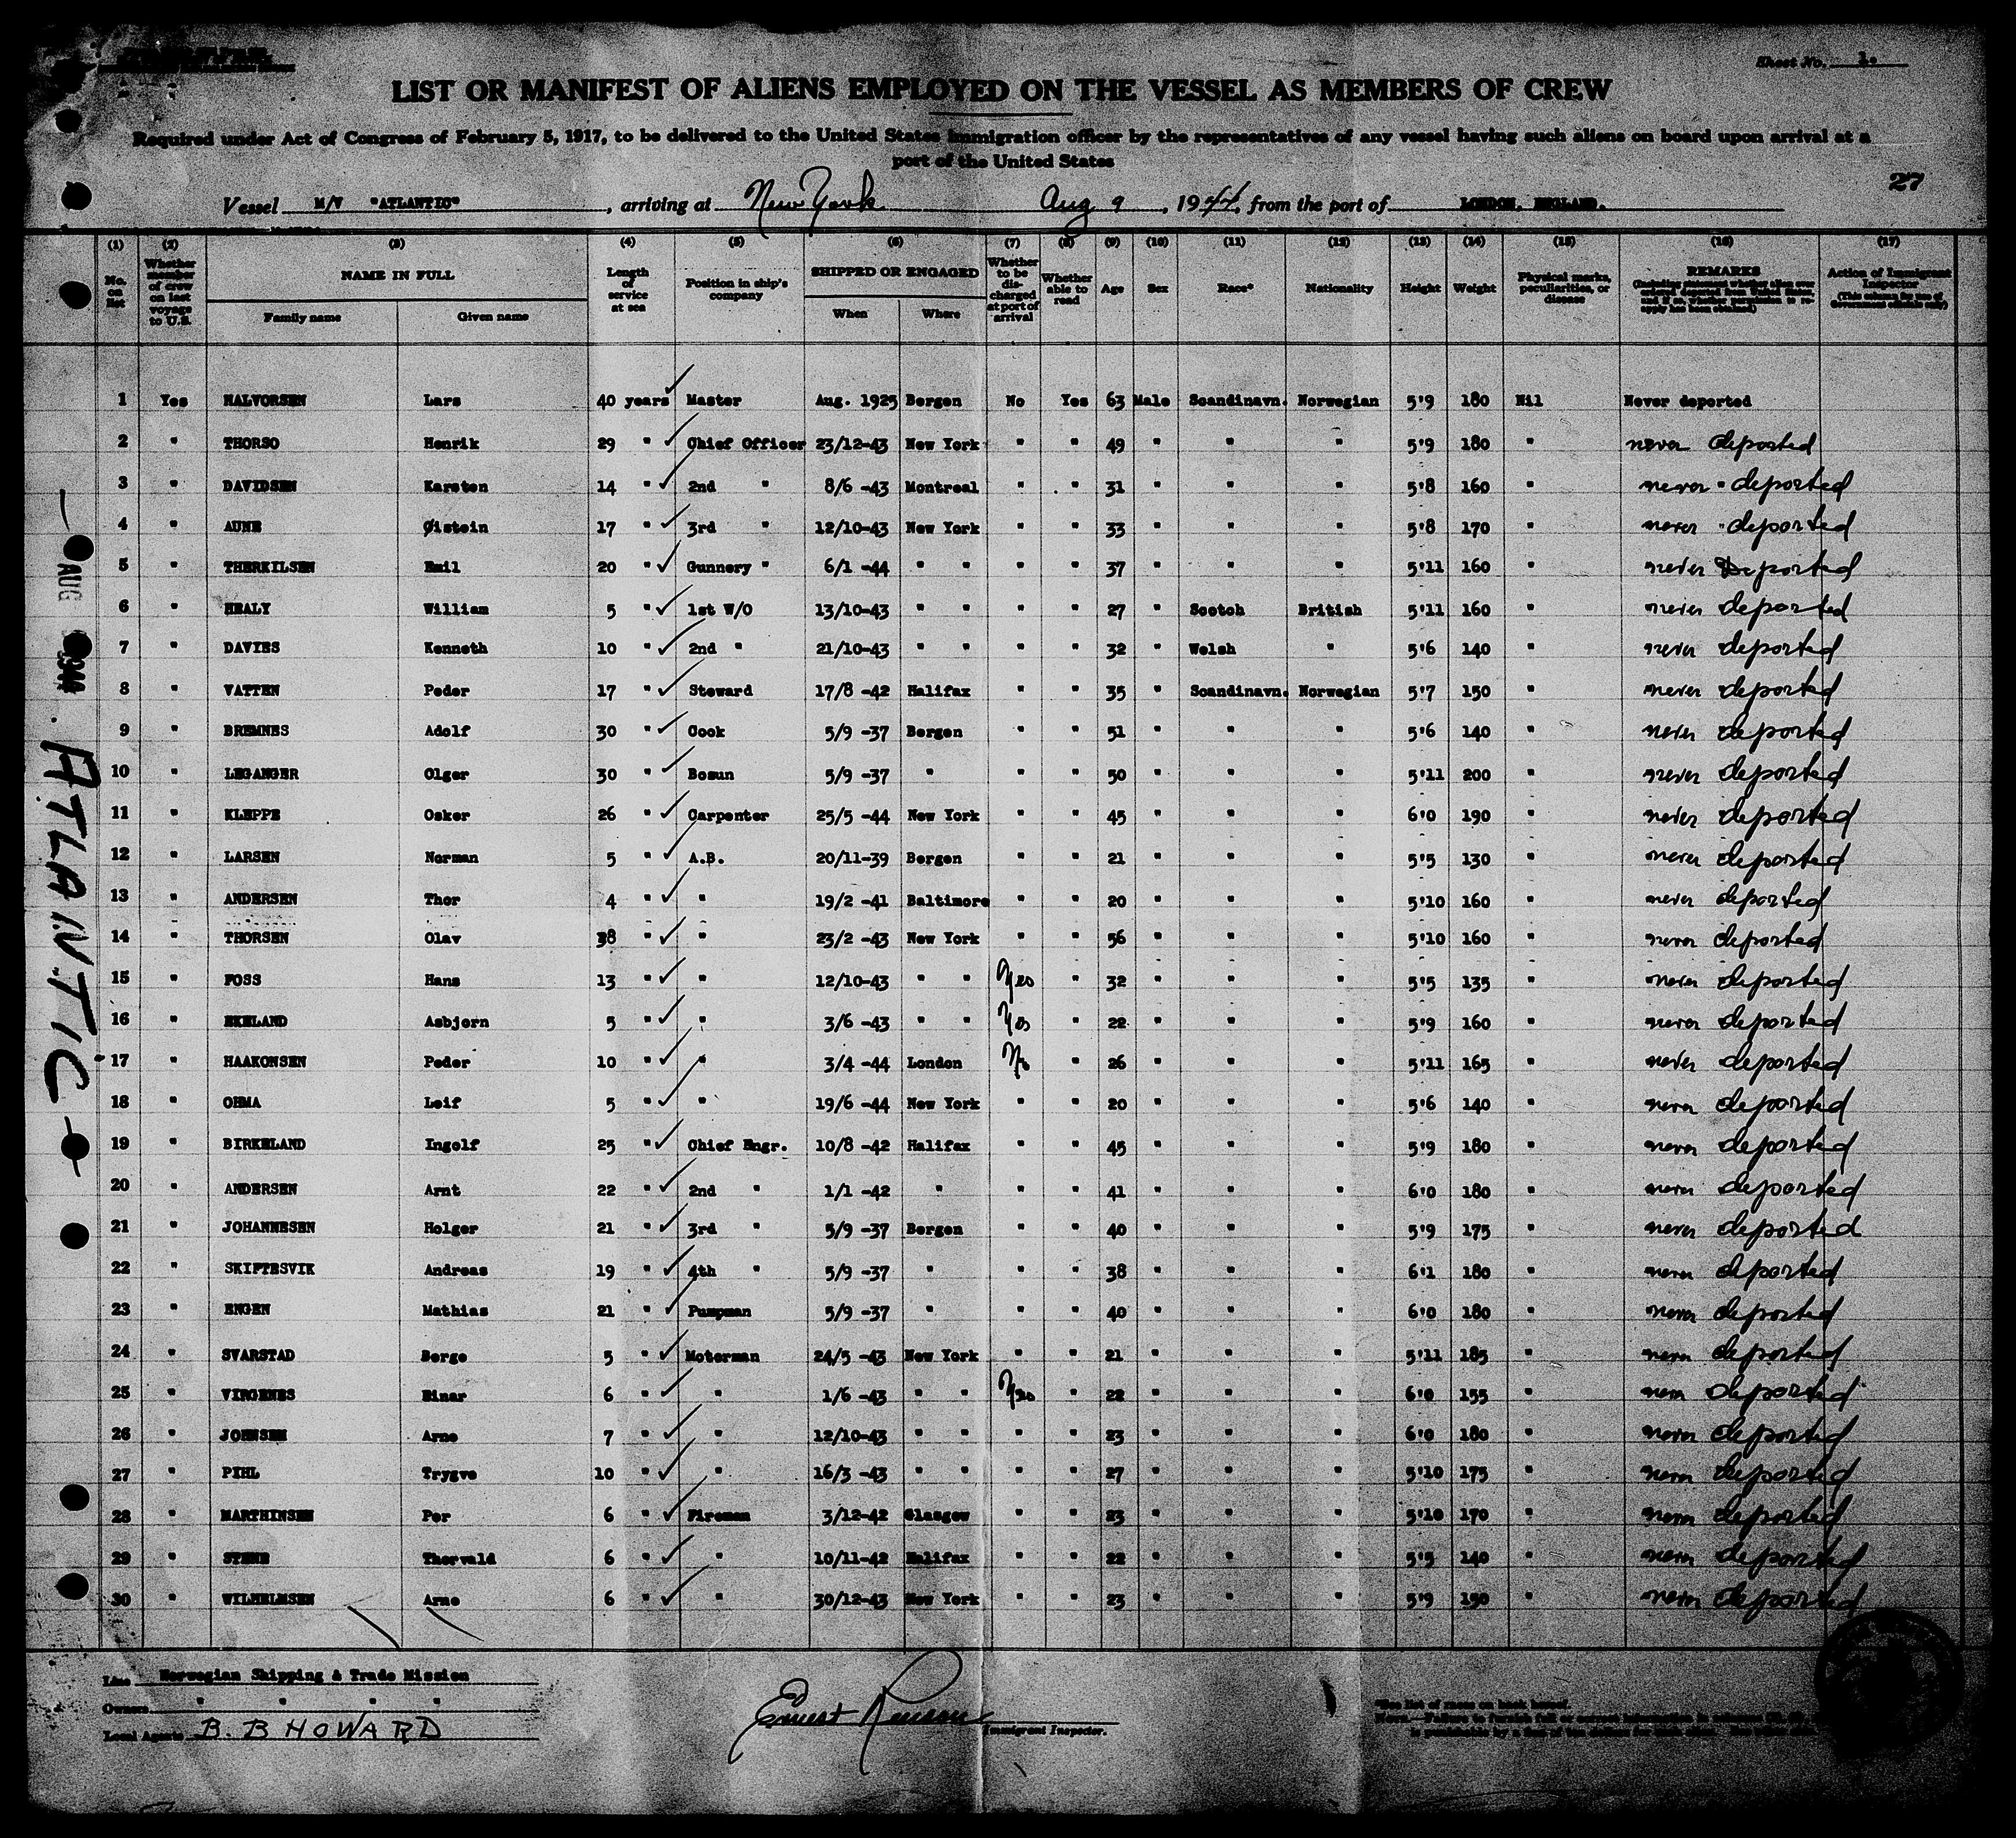 Sheet No. 1.
LIST OR MANIFEST OF ALIENS EMPLOYED ON THE VESSEL AS MEMBERS OF CREW
Required under Act of Congress of February 5, 1917, to be delivered to the United States Immigration officer by the representatives of any vessel having such aliens on board upon arrival at a
port of the United States
27
Vessel M/V "ATLANTIC", arriving at New York Aug 9, 1944, from the port of LONDON, ENGLAND.
(1) (2) (3) (4) (5) (6) (7) (8) (9) (10) (11) (12) (13) (14) (15) (16) (17)
No. on list Whether member of crew on last voyage to U.S. NAME IN FULL Family name Given name Length of service at sea Position in ship's company SHIPPED OR ENGAGED When Where Whether to be discharged at port of arrival Whether able to read Age Sex Race* Nationality Height Weight Physical marks, peculiarities, or disease REMARKS (Including statement whether alien ever ordered deported from United States, and if so, whether permission to reapply has been obtained) Action of Immigrant Inspector (This column for use of Government officials only)
1 Yes HALVORSEN Lars 40 years Master Aug. 1925 Bergen No Yes 63 Male Scandinavn. Norwegian 5'9 180 Nil Never deported
2 " THORSO Henrik 29 " Chief Officer 23/12-43 New York " " 49 " " " 5'9 180 " never deported
3 " DAVIDSEN Karsten 14 " 2nd " 8/6 -43 Montreal " " 31 " " " 5'8 160 " never deported
4 " AUNE Øistein 17 " 3rd " 12/10-43 New York " " 33 " " " 5'8 170 " never deported
5 " THERKILSEN Emil 20 " Gunnery " 6/1 -44 " " " " 37 " " " 5'11 160 " never Deported
6 " HEALY William 5 " 1st W/O 13/10-43 " " " " 27 " Scotch British 5'11 160 " never deported
7 " DAVIES Kenneth 10 " 2nd " 21/10-43 " " " " 32 " Welsh " 5'6 140 " never deported
8 " VATTEN Peder 17 " Steward 17/8 -42 Halifax " " 35 " Scandinavn. Norwegian 5'7 150 " never deported
9 " BREMNES Adolf 30 " Cook 5/9 -37 Bergen " " 51 " " " 5'6 140 " never deported
10 " LEGANGER Olger 30 " Bosun 5/9 -37 " " " 50 " " " 5'11 200 " never deported
11 " KLEPPE Osker 26 " Carpenter 25/5 -44 New York " " 45 " " " 6'0 190 " never deported
12 " LARSEN Norman 5 " A.B. 20/11-39 Bergen " " 21 " " " 5'5 130 " never deported
13 " ANDERSEN Thor 4 " " 19/2 -41 Baltimore " " 20 " " " 5'10 160 " never deported
14 " THORSEN Olav 38 " " 23/2 -43 New York " " 56 " " " 5'10 160 " never deported
15 " FOSS Hans 13 " " 12/10-43 " " Yes " 32 " " " 5'5 135 " never deported
16 " EKELAND Asbjorn 5 " " 3/6 -43 " " Yes " 22 " " " 5'9 160 " never deported
17 " HAAKONSEN Peder 10 " " 3/4 -44 London No " 26 " " " 5'11 165 " never deported
18 " OHMA Leif 5 " " 19/6 -44 New York " " 20 " " " 5'6 140 " never deported
19 " BIRKELAND Ingolf 25 " Chief Engr. 10/8 -42 Halifax " " 45 " " " 5'9 180 " never deported
20 " ANDERSEN Arnt 22 " 2nd " 1/1 -42 " " " 41 " " " 6'0 180 " never deported
21 " JOHANNESEN Holger 21 " 3rd " 5/9 -37 Bergen " " 40 " " " 5'9 175 " never deported
22 " SKIFTESVIK Andreas 19 " 4th " 5/9 -37 " " " 38 " " " 6'1 180 " never deported
23 " ENGEN Mathias 21 " Pumpman 5/9 -37 " " " 40 " " " 6'0 180 " never deported
24 " SVARSTAD Borge 5 " Motorman 24/5 -43 New York " " 21 " " " 5'11 185 " never deported
25 " VIRGENES Einar 6 " " 1/6 -43 " " Yes " 22 " " " 6'0 155 " never deported
26 " JOHNSEN Arne 7 " " 12/10-43 " " " " 23 " " " 6'0 180 " never deported
27 " PIHL Trygve 10 " " 16/3 -43 " " " " 27 " " " 5'10 175 " never deported
28 " MARTHINSEN Per 6 " Fireman 3/12-42 Glasgow " " 23 " " " 5'10 170 " never deported
29 " STENE Thorvald 6 " " 10/11-42 Halifax " " 22 " " " 5'5 140 " never deported
30 " WILHELMSEN Arne 6 " " 30/12-43 New York " " 23 " " " 5'9 150 " never deported
AUG 1944 ATLANTIC
Line Norwegian Shipping & Trade Mission
Owners " " " "
Local Agents B. B HOWARD
Ernest
Immigrant Inspector.
*See list of races on back hereof.